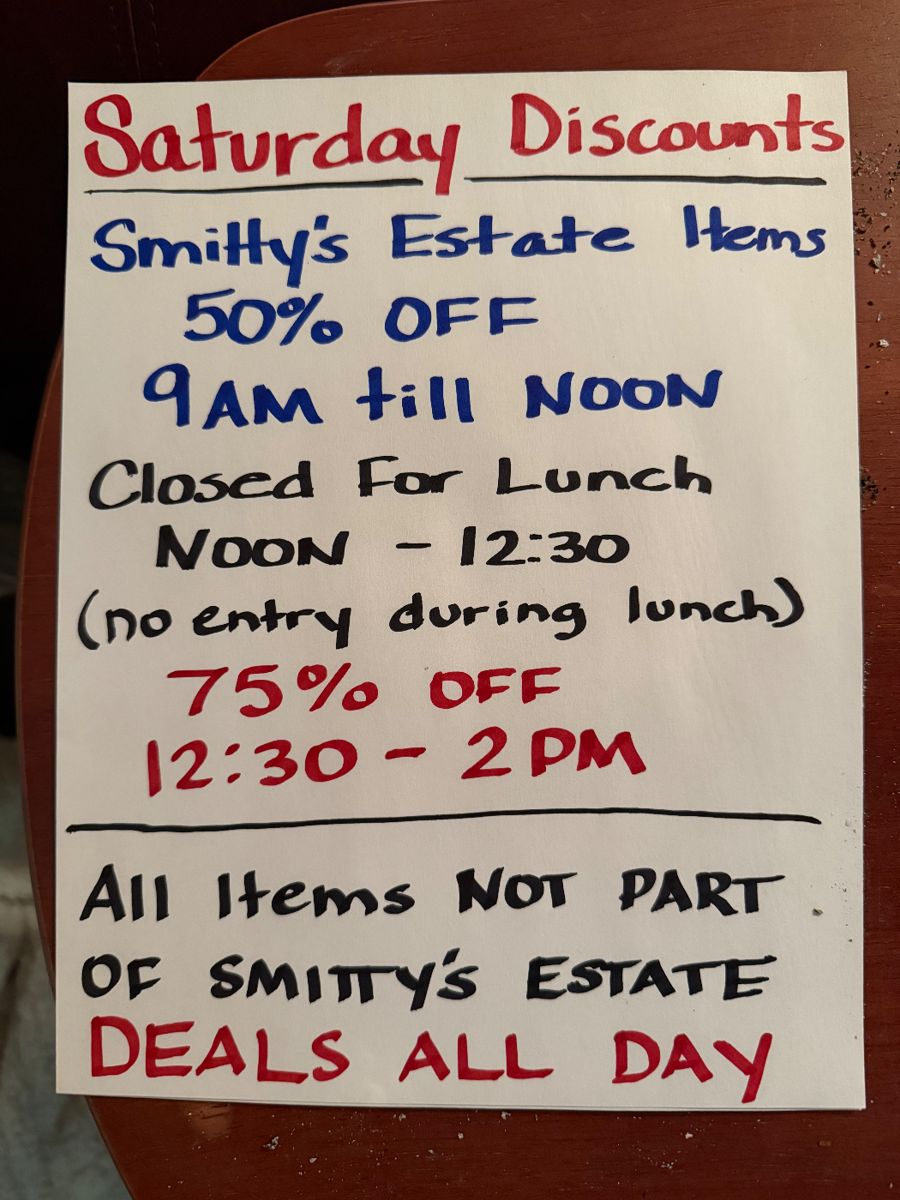 Saturday Discounts
Smitty's Estate Items
50% OFF
9AM till NOON
Closed For Lunch
NOON - 12:30
(no entry during lunch)
75% OFF
12:30 - 2PM
All Items NOT PART
OF SMITTY'S ESTATE
DEALS ALL DAY